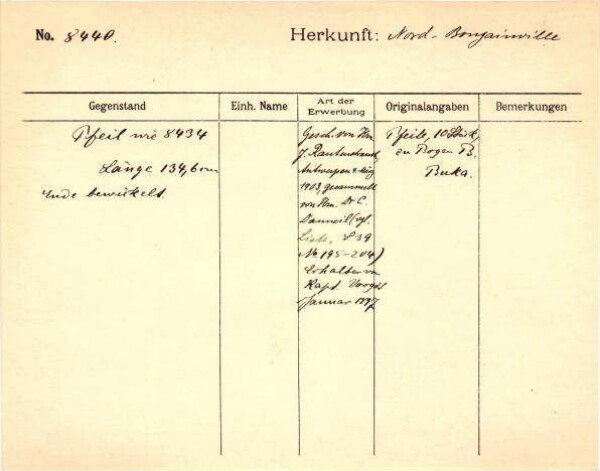 No. 8440.
Herkunft: Nord-Bougainville
Gegenstand
Einh. Name
Art der Erwerbung
Originalangaben
Bemerkungen
Pfeil wie 8434
Länge 134,6 cm
Ende bewickelt.
Gesch. von Hn
J. Rautenstrauch,
Antwerpen
1903, gesammelt
von Hn. Dr C.
Danneil (vgl.
Liste, S 39
No 195-204)
Erhalten von
Kapt. Voogdt
Januar 1897
Pfeile, 10 Stück,
zu Bogen
Buka.